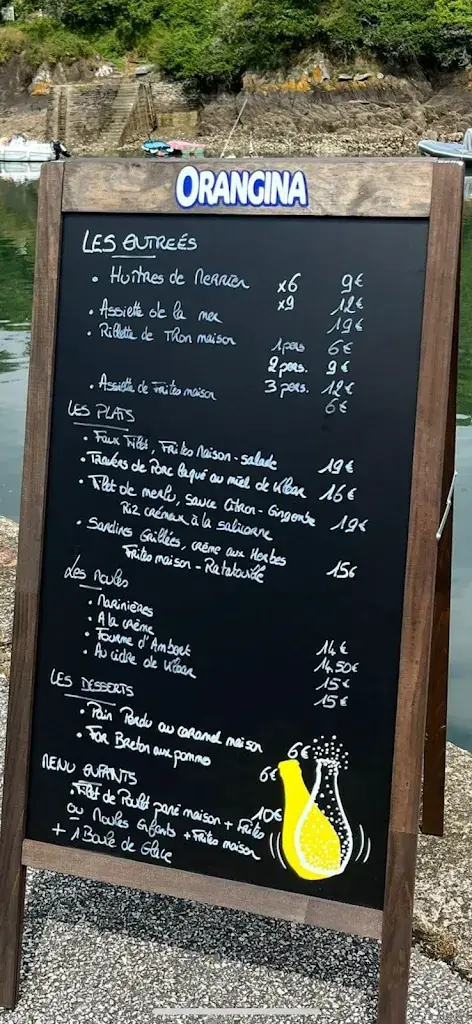 ORANGINA
LES ENTREÉS
• Huîtres de Merrien x6 9€
x9 12€
• Assiette de la mer 19€
• Rillette de Thon maison 1 pers 6€
2 pers. 9€
3 pers. 12€
• Assiette de Frites maison 6€
LES PLATS
• Faux Filet, Frites Maison - salade 19€
• Travers de Porc laqué au miel de 16€
• Filet de merlu, sauce Citron - Gingembre 19€
Riz crémeux à la salicorne
• Sardines Grillées, crème aux Herbes 15€
Frites maison - Ratatouille
Les Moules
• Marinières 14€
• A la crème 14.50€
• Fourme d'Ambert 15€
• Au cidre de 15€
LES DESSERTS
• Pain Perdu au caramel maison 6€
• Far Breton aux pommes 6€
MENU ENFANTS 10€
• Filet de Poulet pané maison + Frites
ou Moules Enfants + Frites maison
+ 1 Boule de Glace